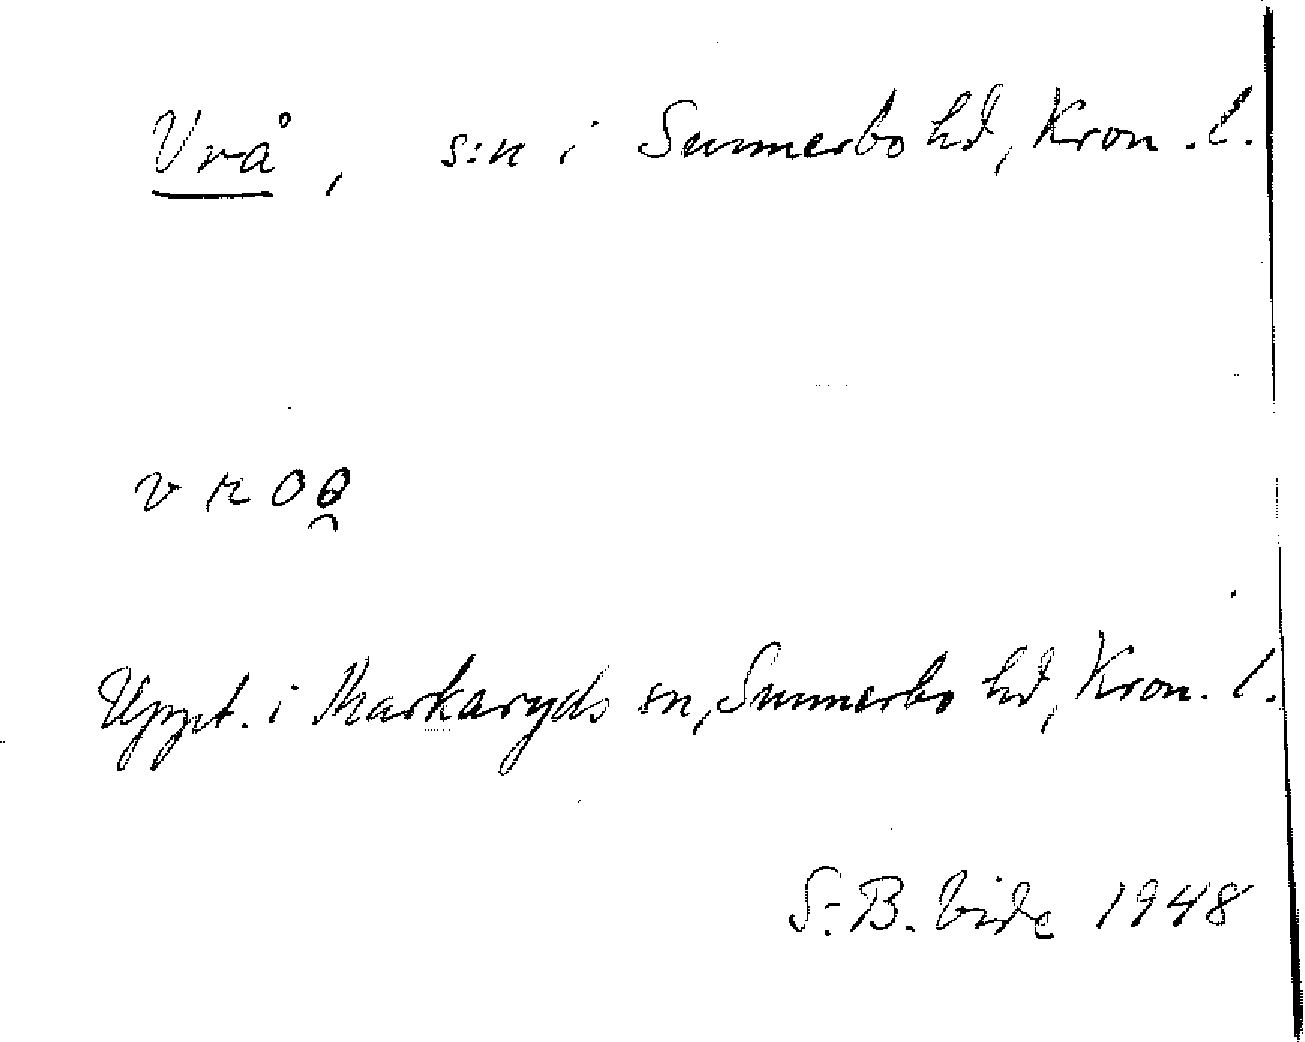 Vrå, s:n i Sunnerbo hd, Kron. l.
v r o ɵ̯
Uppt. i Markaryds sn, Sunnerbo hd, Kron. l.
S. B. Vide 1948